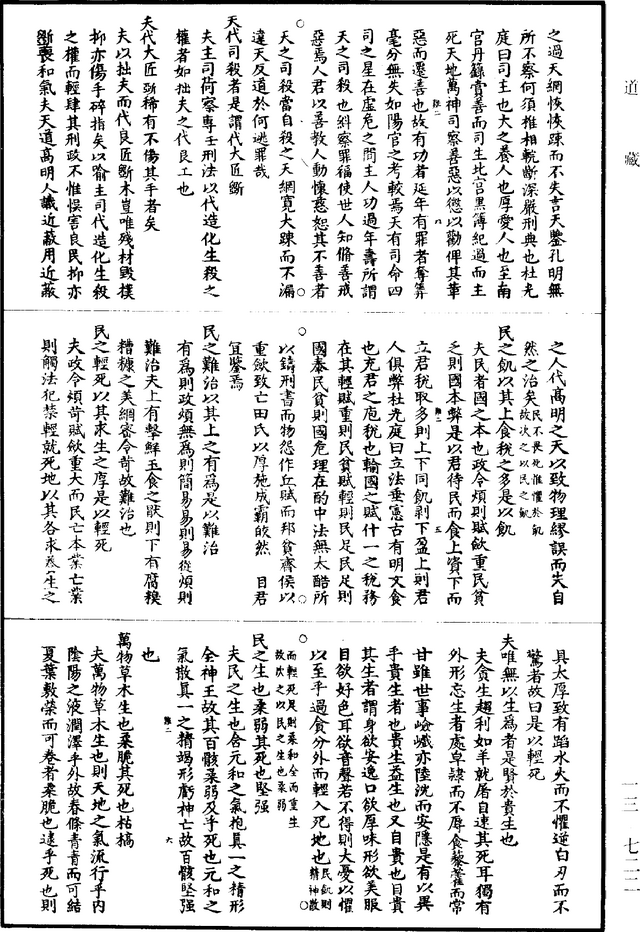 道藏
之過天網恢恢踈而不失言天鑒孔明無
所不察何須椎相斬斷深嚴刑典也杜光
庭曰司主也大之養人也厚愛人也至南
宮丹籙賞善而司生北宮黑簿紀過而主
死天地萬神司察善惡以懲以勸俾其革
惡而還善也故有功者延年有罪者奪筭
毫分無失如陽官之考較焉天有司命四
司之星在虛危之間主人功過年壽所謂
天之司殺也糾察罪福使世人知脩善戒
惡焉人君以善教人動懷慈恕其不善者
天之司殺當自殺之天網寬大踈而不漏
違天反道於何逃罪哉
天代司殺者是謂代大匠斲
夫主司荷察專任刑法以代造化生殺之
權者如拙夫之代良工也
夫代大匠斲稀有不傷其手者矣
夫以拙夫而代良匠斲木豈唯殘材毀樸
抑亦傷手碎指矣以喻主司代造化生殺
之權而輕肆其刑政不惟悮害良民抑亦
斲喪和氣夫天道高明人識近蔽用近蔽
之人代高明之天以致物理繆誤而失自
然之治矣民不畏死惟懼於飢故次之以民之飢
民之飢以其上食稅之多是以飢
夫民者國之本也政令煩則賦斂重民貧
乏則國本弊是以君待民而食上資下而
立君稅取多則上下同飢剥下盈上則君
人俱弊杜光庭曰立法垂憲古有明文食
也充君之庖稅也輸國之賦什一之稅務
在其輕賦重則民貧賦輕則民足民足則
國泰民貧則國危理在酌中法無太酷所
以鑄刑書而物怨作丘賦而邦貧齊侯以
重斂致亡田氏以厚施成霸皎然目君
宜鑒焉
民之難治以其上之有爲是以難治
有爲則政煩無爲則簡易易則易從煩則
難治夫上有擊鮮玉食之猒則下有腐糗
糟糠之美網密令苛故難治也
民之輕死以其求生之厚是以輕死
夫政令煩苛賦斂重大而民亡本業亡業
則觸法犯禁輕就死地以其各求養生之
具太厚致有蹈水火而不懼逆白刃而不
驚者故曰是以輕死
夫唯無以生爲者是賢於貴生也
夫貪生趨利如羊就屠自速其死耳獨有
外形忘生者處皁隷而不辱食藜藿而常
甘雖世事嶮巇亦陸沈而安隱是有以異
乎貴生者也貴生益生也又自貴也目貴
其生者謂身欲安逸口欲厚味形欲美服
目欲好色耳欲音聲若不得則大憂以懼
以至乎過貪分外而輕入死地也民飢則精神散
而輕死足則柔和全而重生故次之以民之生也柔弱
民之生也柔弱其死也堅强
夫民之生也含元和之氣抱眞一之精形
全神王故其百骸柔弱及乎死也元和之
氣散眞一之精竭形虧神亡故百骸堅强
也
萬物草木生也柔脆其死也枯槁
夫萬物草木生也則天地之氣流行乎内
陰陽之液潤澤乎外故春條青青而可結
夏葉敷榮而可卷者柔脆也逮乎死也則
一三　七二一